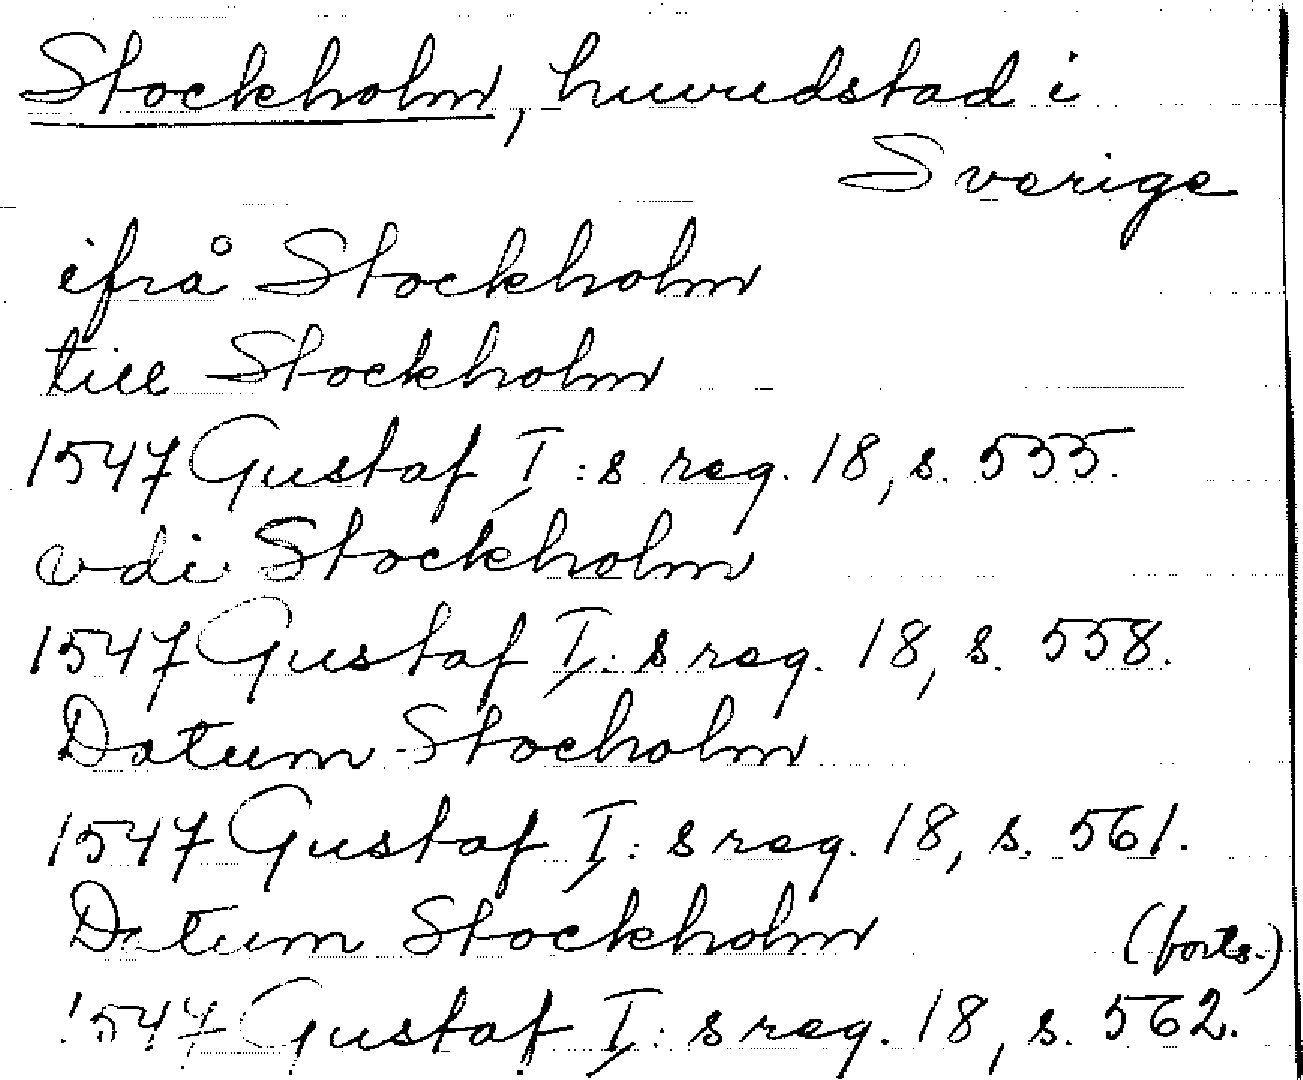 Stockholm, huvudstad i
Sverige
ifrå Stockholm
till Stockholm
1547 Gustaf I:s reg. 18, s. 535.
vdi Stockholm
1547 Gustaf I:s reg. 18, s. 558.
Datum Stocholm
1547 Gustaf I:s reg. 18, s. 561.
Datum Stockholm (forts.)
1547 Gustaf I:s reg. 18, s. 562.